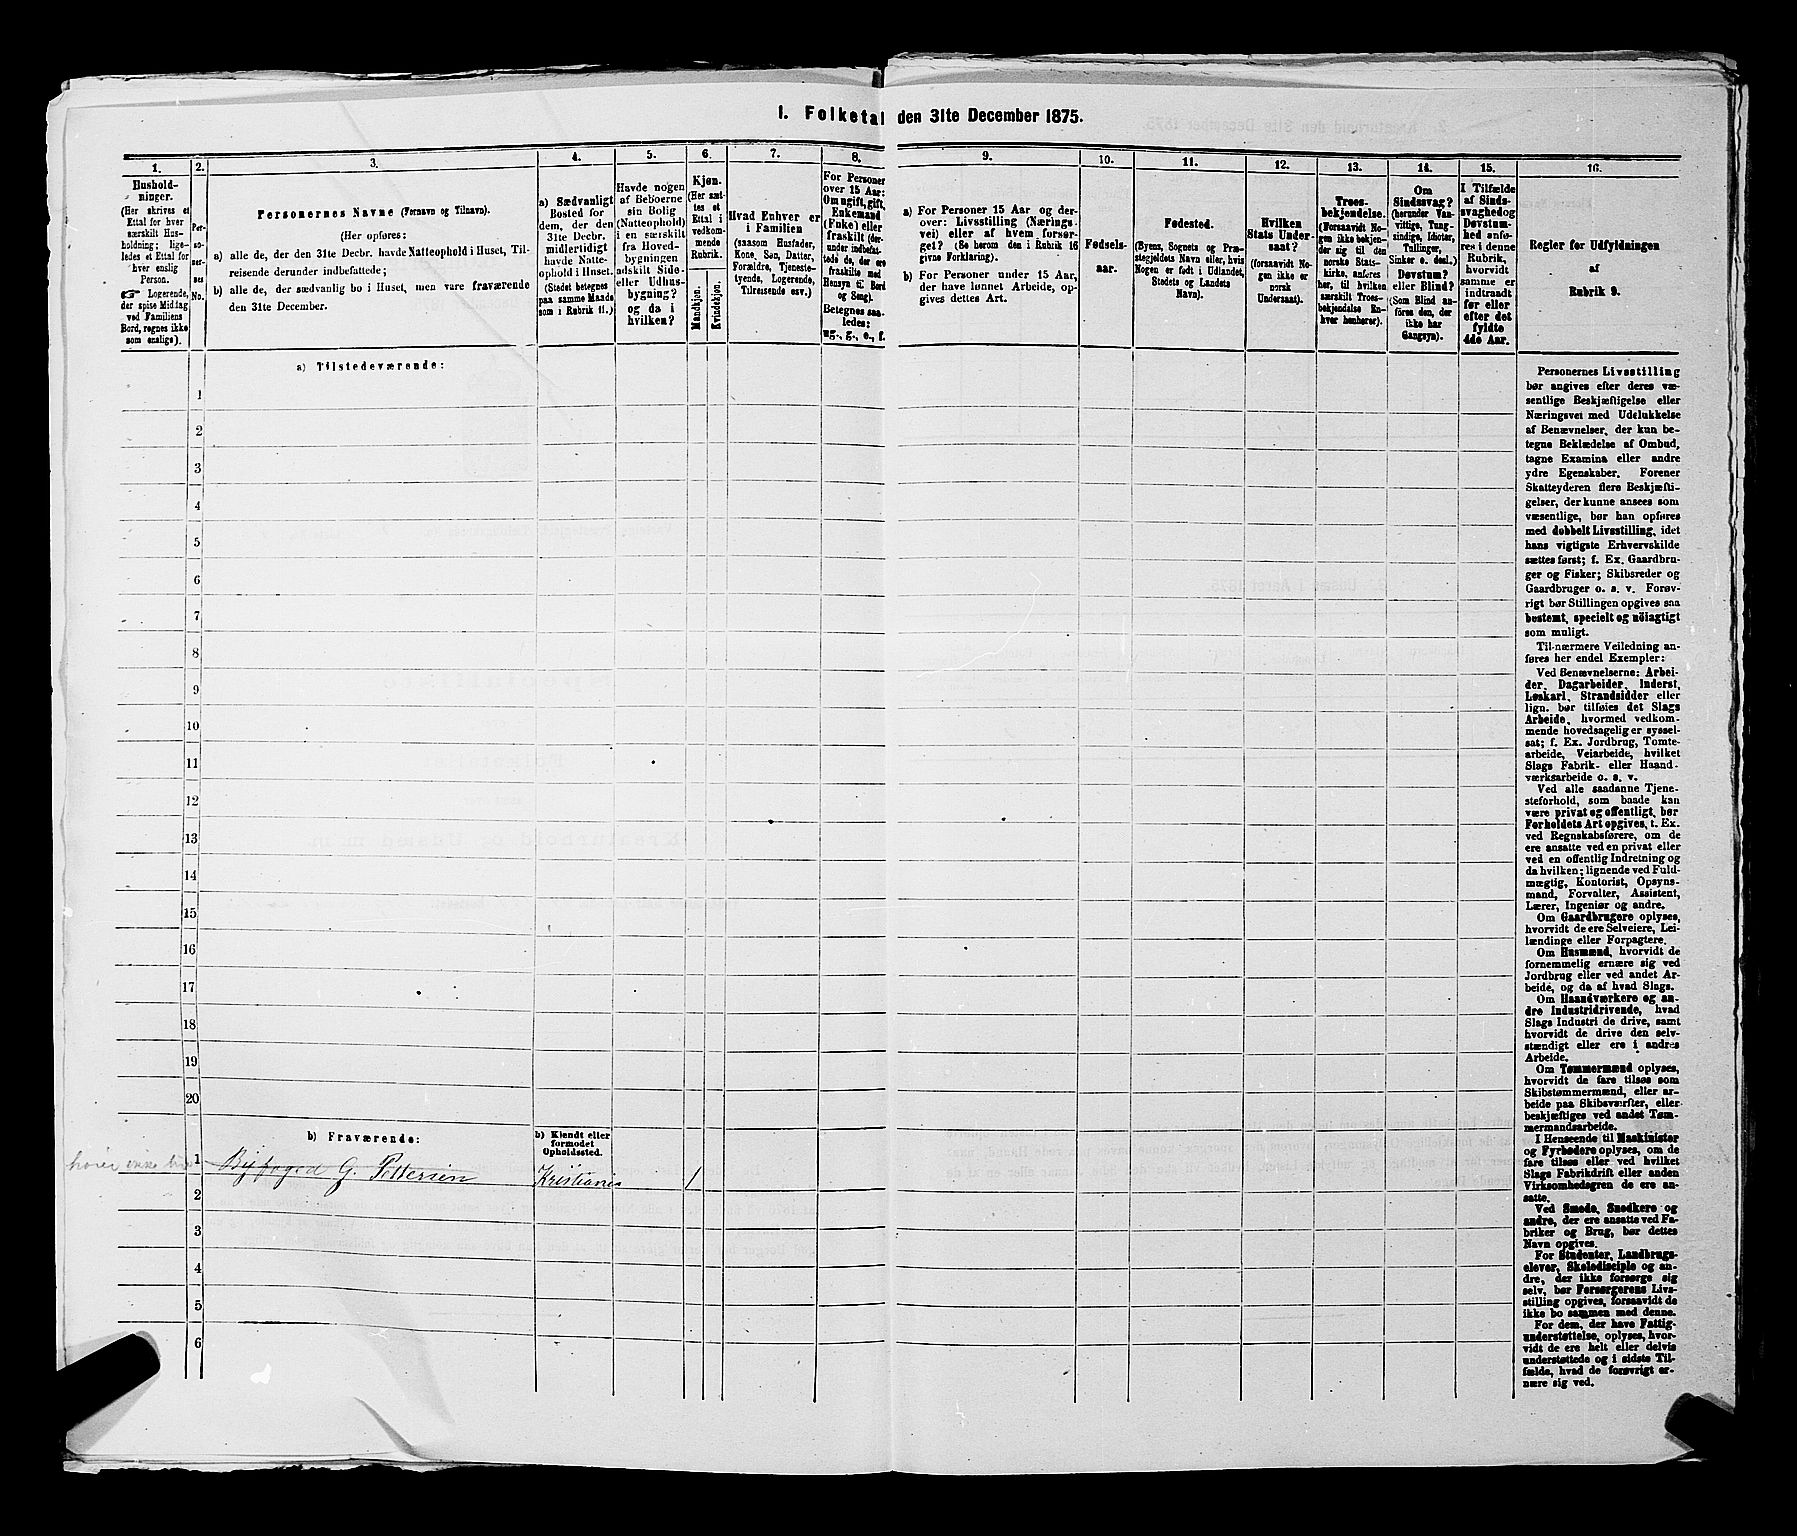 I. Folketal den 31te December 1875.
1.
Hushold-
ninger.
(Her skrives et
Ettal for hver
særskilt Hus-
holdning; lige-
ledes et Ettal for
hver enslig
Person.
☞ Logerende,
der spise Middag
ved Familiens
Bord, regnes ikke
som enslige).
2.
Per-
so-
ner-
nes
No.
3.
Personernes Navne (Fornavn og Tilnavn).
(Her opføres:
a) alle de, der den 31te Decbr. havde Natteophold i Huset, Til-
reisende derunder indbefattede;
b) alle de, der sædvanlig bo i Huset, men vare fraværende
den 31te December.
4.
a) Sædvanligt
Bosted for
dem, der den
31te Decbr.
midlertidigt
havde Natte-
ophold i Huset.
(Stedet betegnes
paa samme Maade
som i Rubrik 11.)
5.
Havde nogen
af Beboerne
sin Bolig
(Natteophold)
i en særskilt
fra Hoved-
bygningen
adskilt Side-
eller Udhus-
bygning?
og da i
hvilken?
6.
Kjøn.
(Her sæt-
tes et
Ettal i
vedkom-
mende
Rubrik.
Mandkjøn.
Kvindekjøn.
7.
Hvad Enhver er
i Familien
(saasom Husfader,
Kone, Søn, Datter,
Forældre, Tjeneste-
tyende, Logerende,
Tilreisende osv.)
8.
For Personer
over 15 Aar:
Om ugift, gift,
Enkemand
(Enke) eller
fraskilt (der-
under indbefat-
tede de, der ere
fraskilte med
Hensyn til Bord
og Seng).
Betegnes saa-
ledes:
ug., g., e., f.
9.
a) For Personer 15 Aar og der-
over: Livsstilling (Nærings-
vei) eller af hvem forsør-
get? (Se herom den i Rubrik 16
givne Forklaring).
b) For Personer under 15 Aar,
der have lønnet Arbeide, op-
gives dettes Art.
10.
Fødsels-
aar.
11.
Fødested.
(Byens, Sognets og Præ-
stegjeldets Navn eller, hvis
Nogen er født i Udlandet,
Stedets og Landets
Navn).
12.
Hvilken
Stats Under-
saat?
(forsaavidt No-
gen ikke er
norsk
Undersaat).
13.
Troes-
bekjendelse.
(Forsaavidt No-
gen ikke bekjen-
der sig til den
norske Stats-
kirke, anføres
her, til hvilken
særskilt Troes-
bekjendelse En-
hver henhører).
14.
Om
Sindssvag?
(herunder Van-
vittige, Tung-
sindige, Idioter,
Tullinger,
Sinker o. desl.)
Døvstum?
eller Blind?
(Som Blind an-
føres den, der
ikke har
Gangsyn).
15.
I Tilfælde
af Sinds-
svaghed og
Døvstum-
hed anfø-
res i denne
Rubrik,
hvorvidt
samme er
indtraadt
før eller
efter det
fyldte
4de Aar.
16.
Regler for Udfyldningen
af
Rubrik 9.
a) Tilstedeværende:
1
2
3
4
5
6
7
8
9
10
11
12
13
14
15
16
17
18
19
20
b) Fraværende:
b) Kjendt eller
formodet
Opholdssted.
1 Byfoged G. Pettersen Kristiania 1
2
3
4
5
6
Personernes Livsstilling
bør angives efter deres væ-
sentlige Beskjæftigelse eller
Næringsvei med Udelukkelse
af Benævnelser, der kun be-
tegne Beklædelse af Ombud,
tagne Examina eller andre
ydre Egenskaber. Forener
Skatteyderen flere Beskjæfti-
gelser, der kunne ansees som
væsentlige, bør han opføres
med dobbelt Livsstilling, idet
hans vigtigste Erhvervskilde
sættes først; f. Ex. Gaardbru-
ger og Fisker; Skibsreder og
Gaardbruger o. s. v. Forøv-
rigt bør Stillingen opgives saa
bestemt, specielt og nöiagtigt
som muligt.
Til nærmere Veiledning an-
føres her endel Exempler:
Ved Benævnelserne: Arbei-
der, Dagarbeider, Inderst,
Løskarl, Strandsidder eller
lign. bør tilføies det Slags
Arbeide, hvormed vedkom-
mende hovedsagelig er syssel-
sat; f. Ex. Jordbrug, Tomte-
arbeide, Veiarbeide, hvilket
Slags Fabrik- eller Haand-
værksarbeide o. s. v.
Ved alle saadanne Tjene-
steforhold, som baade kan
være privat og offentligt, bør
Forholdets Art opgives, t. Ex.
ved Regnskabsførere, om de
ere ansatte ved en privat eller
ved en offentlig Indretning og
da hvilken; lignende ved Fuld-
mægtig, Kontorist, Opsyns-
mand, Forvalter, Assistent,
Lærer, Ingeniør og andre.
Om Gaardbrugere oplyses,
hvorvidt de ere Selveiere, Lei-
lændinge eller Forpagtere.
Om Husmænd, hvorvidt de
fornemmelig ernære sig ved
Jordbrug eller ved andet Ar-
beide, og da af hvad Slags.
Om Haandværkere og an-
dre Industridrivende, hvad
Slags Industri de drive, samt
hvorvidt de drive den selv-
stændigt eller ere i andres
Arbeide.
Om Tømmermænd oplyses,
hvorvidt de fare tilsøs som
Skibstømmermænd, eller ar-
beide paa Skibsværfter, eller
beskjæftiges ved andet Tøm-
mermandsarbeide.
I Henseende til Maskinister
og Fyrbødere oplyses, om de
fare tilsøs eller ved hvilket
Slags Fabrikdrift eller anden
Virksomhedsgren de ere an-
satte.
Ved Smede, Snedkere og
andre, der ere ansatte ved Fa-
briker og Brug, bør dettes
Navn opgives.
For Studenter, Landbrugs-
elever, Skoledisciple og an-
dre, der ikke forsørge sig
selv, bør Forsørgerens Livs-
stilling opgives, forsaavidt de
ikke bo sammen med denne.
For dem, der have Fattig-
understøttelse, oplyses, hvor-
vidt de ere helt eller delvis
understøttede og i sidste Til-
fælde, hvad de forøvrigt er-
nære sig ved.